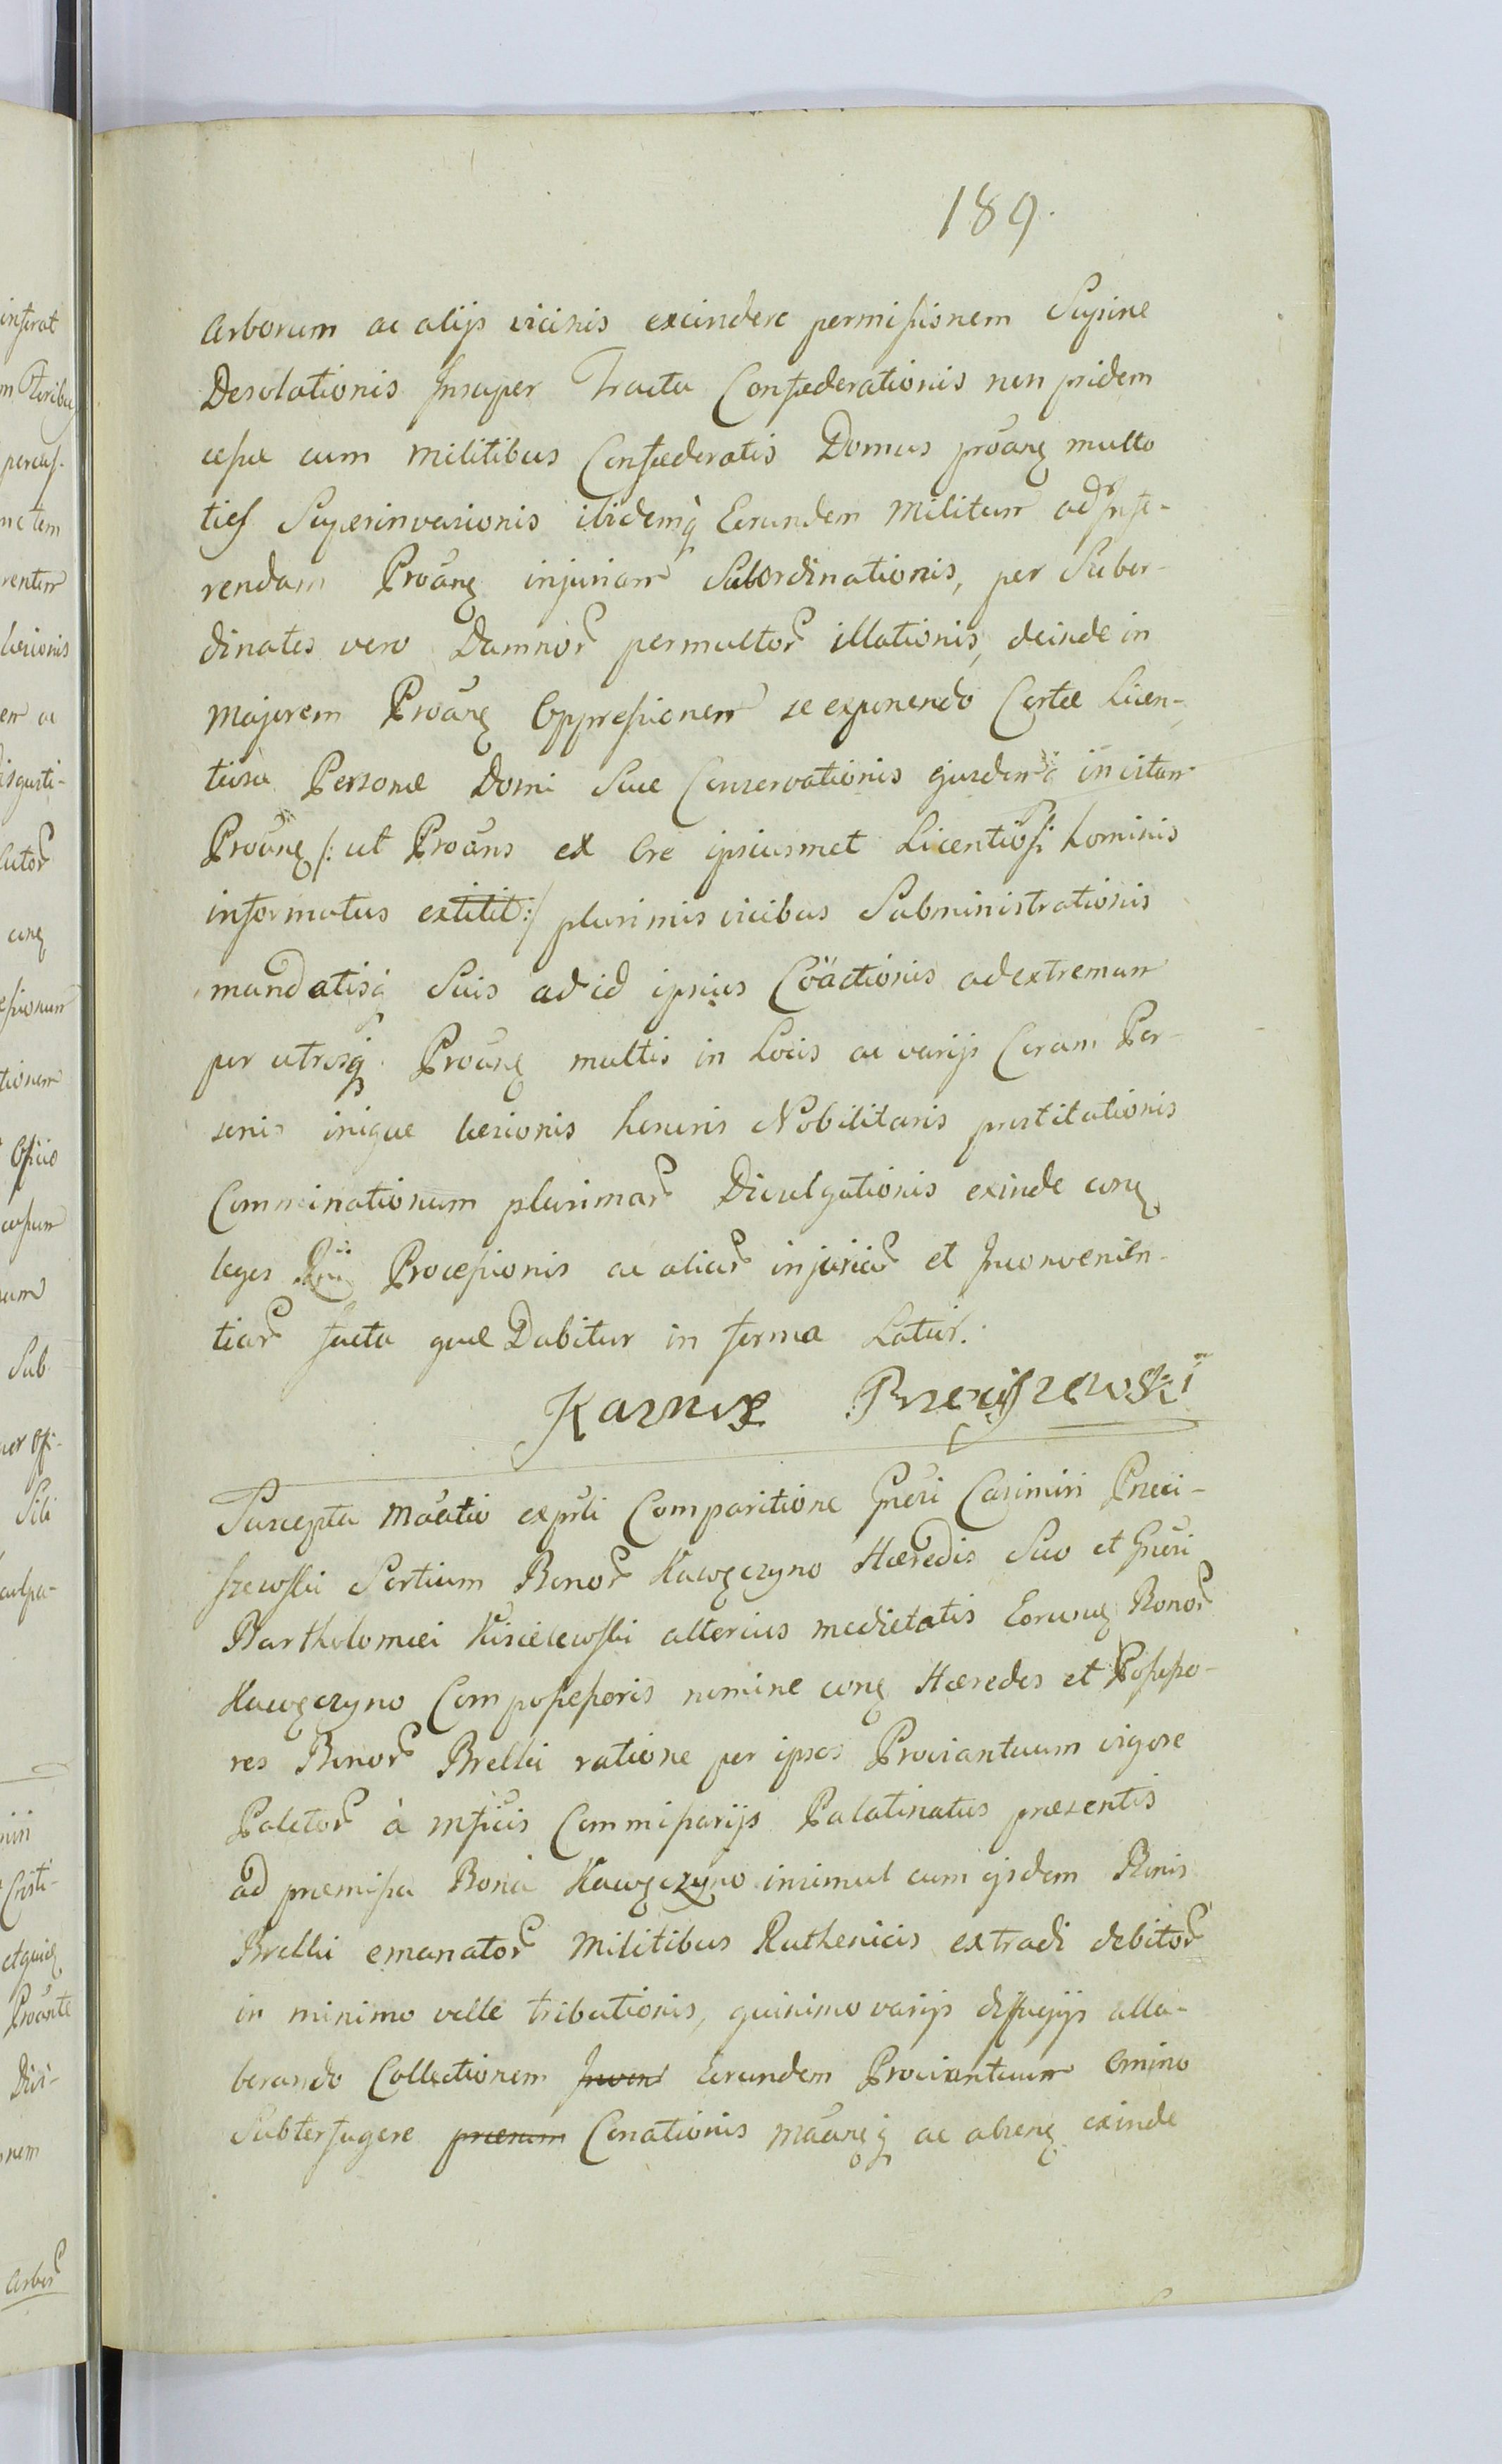 189.
Arborum ac alijs vicinis excindere permissionem Supine
Desolationis Insuper Tractu Confæderationis non pridem
cessæ cum Militibus Confæderatis Domus proãng multo
ties Superinvasionis ibidemq Eorundem Militum ad Infe-
rendam Proãng injuriam Subordinationis, per Subor-
dinatos vero Damnor permultor illationis, deinde in
Majorem Proãng Oppressionem se exponendo Certæ Licen-
tiosæ Personæ Domi Suæ Conservationis ejusdemq in vitam
Proãng /: ut Proãns ex Ore ipsiusmet Licentiosi hominis
informatus extitit :/ plurimis vicibus Subministrationis
mandatisq Suis ad id ipsius Coäctionis ad extremum
per utrosq Proãng multis in Locis ac varijs Coram Per-
sonis inique læsionis honoris Nobilitaris prostitutionis
Comminationum plurimar Divulgationis exinde cong
leges Processionis ac aliar injuriar et Inconvenien-
tiar facta quæ Dabitur in forma Latiũ.
Przeciszewski
Suscepta Mãatio exprũti Comparitione Gnẽri Casimiri Przeci-
szewski Sortium Bonor Kawęczyno Hæredis Suo et Gnẽri
Bartholomæi Kisielewski alterius medietatis Eorung Bonor
Kawęczyno Compossessoris nomine cong Hæredes et Possesso-
res Bonor Brelki ratione per ipsos Proviantuum vigore
Paletor à Mficis Commissarijs Palatinatus præsentis
ad præmissa Bona Kawęczyno insimul cum ijsdem Bonis
Brelki emanator Militibus Ruthenicis extradi debitor
in minimo velle tributionis, quinimo varijs diffugijs alla-
borando Collectionem Eorundem Proviantuum omino
Subterfugere Conationis Mãangq ac abseng exinde